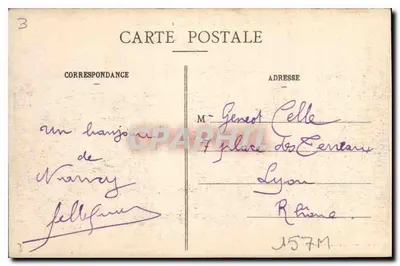 3
CARTE POSTALE
CORRESPONDANCE
ADRESSE
M Geneot Celle
un bonjour
7 place des Terreaux
de
Nancy
Lyon
Rhône
157M